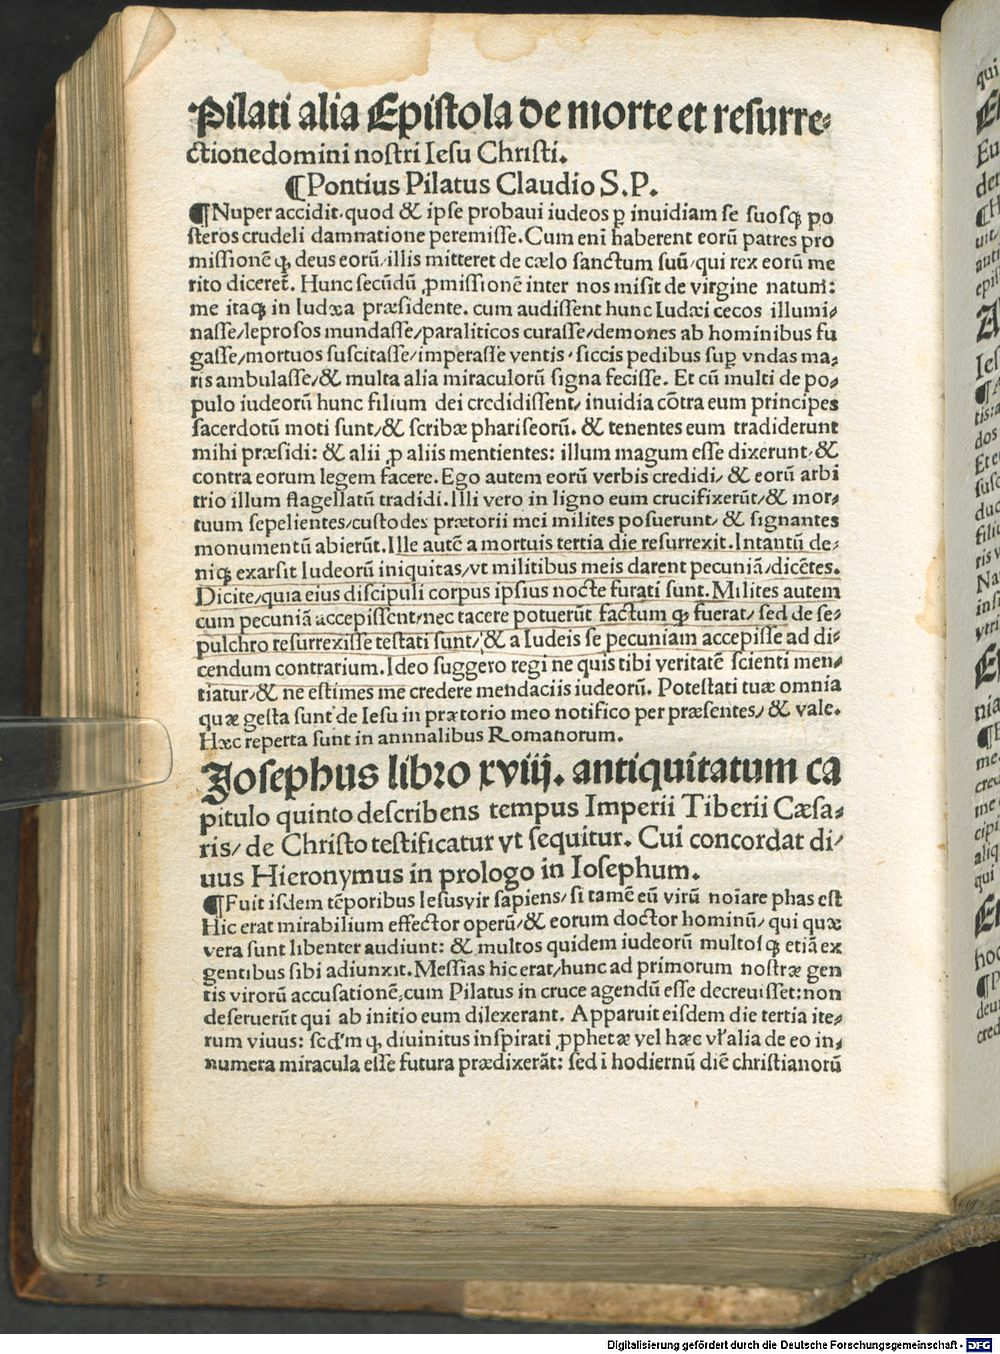 Pilati alia Epistola de morte et resurre⸗
ctionedomini nostri Iesu Christi.
¶Pontius Pilatus Claudio S.P.
¶Nuper accidit, quod & ipse probaui iudeos ꝑ inuidiam se suosꝗ po
steros crudeli damnatione peremisse. Cum eni haberent eorũ patres pro
missionẽ ꝗ, deus eorũ/ illis mitteret de cælo sanctum suũ/ qui rex eorũ me
rito diceret̃. Hunc secũdũ ꝓmissionẽ inter nos misit de virgine natum:
me itaꝗ in Iudæa præsidente. cum audissent hunc Iudæi cecos illumi⸗
nasse/leprosos mundasse/paraliticos curasse/demones ab hominibus fu
gasse/mortuos suscitasse/imperasse ventis, siccis pedibus suꝑ vndas ma⸗
ris ambulasse/& multa alia miraculorũ signa fecisse. Et cũ multi de po⸗
pulo iudeorũ hunc filium dei credidissent/ inuidia cõtra eum principes
sacerdotũ moti sunt/& scribæ phariseorũ. & tenentes eum tradiderunt
mihi præsidi: & alii ꝓ aliis mentientes: illum magum esse dixerunt/ &
contra eorum legem facere. Ego autem eorũ verbis credidi/ & eorũ arbi
trio illum flagellatũ tradidi. Illi vero in ligno eum crucifixerũt/& mor⸗
tuum sepelientes/custodes prætorii mei milites posuerunt/ & signantes
monumentũ abierũt. Ille autẽ a mortuis tertia die resurrexit. Intantũ de⸗
niꝗ exarsit Iudeorũ iniquitas/vt militibus meis darent pecuniã/dicẽtes.
Dicite/quia eius discipuli corpus ipsius nocte furati sunt. Milites autem
cum pecuniã accepissent/nec tacere potuerũt factum ꝗ fuerat/ sed de se⸗
pulchro resurrexisse testati sunt/ & a Iudeis se pecuniam accepisse ad di⸗
cendum contrarium. Ideo suggero regi ne quis tibi veritatẽ scienti men⸗
tiatur/& ne estimes me credere mendaciis iudeorũ. Potestati tuæ omnia
quæ gesta sunt de Iesu in prætorio meo notifico per præsentes/ & vale.
Hæc reperta sunt in annnalibus Romanorum.
Josephus libro xviij. antiquitatum ca
pitulo quinto describens tempus Imperii Tiberii Cæsa⸗
ris/ de Christo testificatur vt sequitur. Cui concordat di/
uus Hieronymus in prologo in Iosephum.
¶Fuit isdem tẽporibus Iesusvir sapiens/ si tamẽ eũ virũ noiare phas est
Hic erat mirabilium effector operũ/& eorum doctor hominũ/ qui quæ
vera sunt libenter audiunt: & multos quidem iudeorũ multosꝗ etiã ex
gentibus sibi adiunxit. Messias hic erat/hunc ad primorum nostræ gen
tis virorũ accusationẽ, cum Pilatus in cruce agendũ esse decreuisset: non
deseruerũt qui ab initio eum dilexerant. Apparuit eisdem die tertia ite⸗
rum viuus: scd'm ꝗ, diuinitus inspirati ꝓphetæ vel hæc vł alia de eo in⸗
numera miracula esse futura prædixerãt: sed i hodiernũ diẽ christianorũ
Digitalisierung gefördert durch die Deutsche Forschungsgemeinschaft - DFG